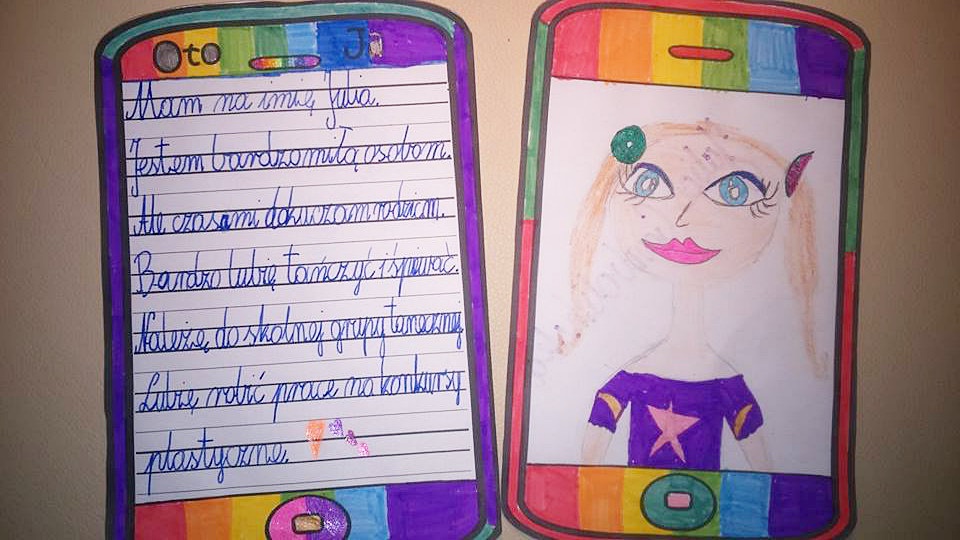 Oto Ja
Mam na imię Julia.
Jestem bardzo miłą osobom.
Ale czasami dokuczam rodzicom.
Bardzo lubię tańczyć i śpiewać.
Należę do szkolnej grupy tanecznej
Lubię robić prace na konkursy
plastyczne.